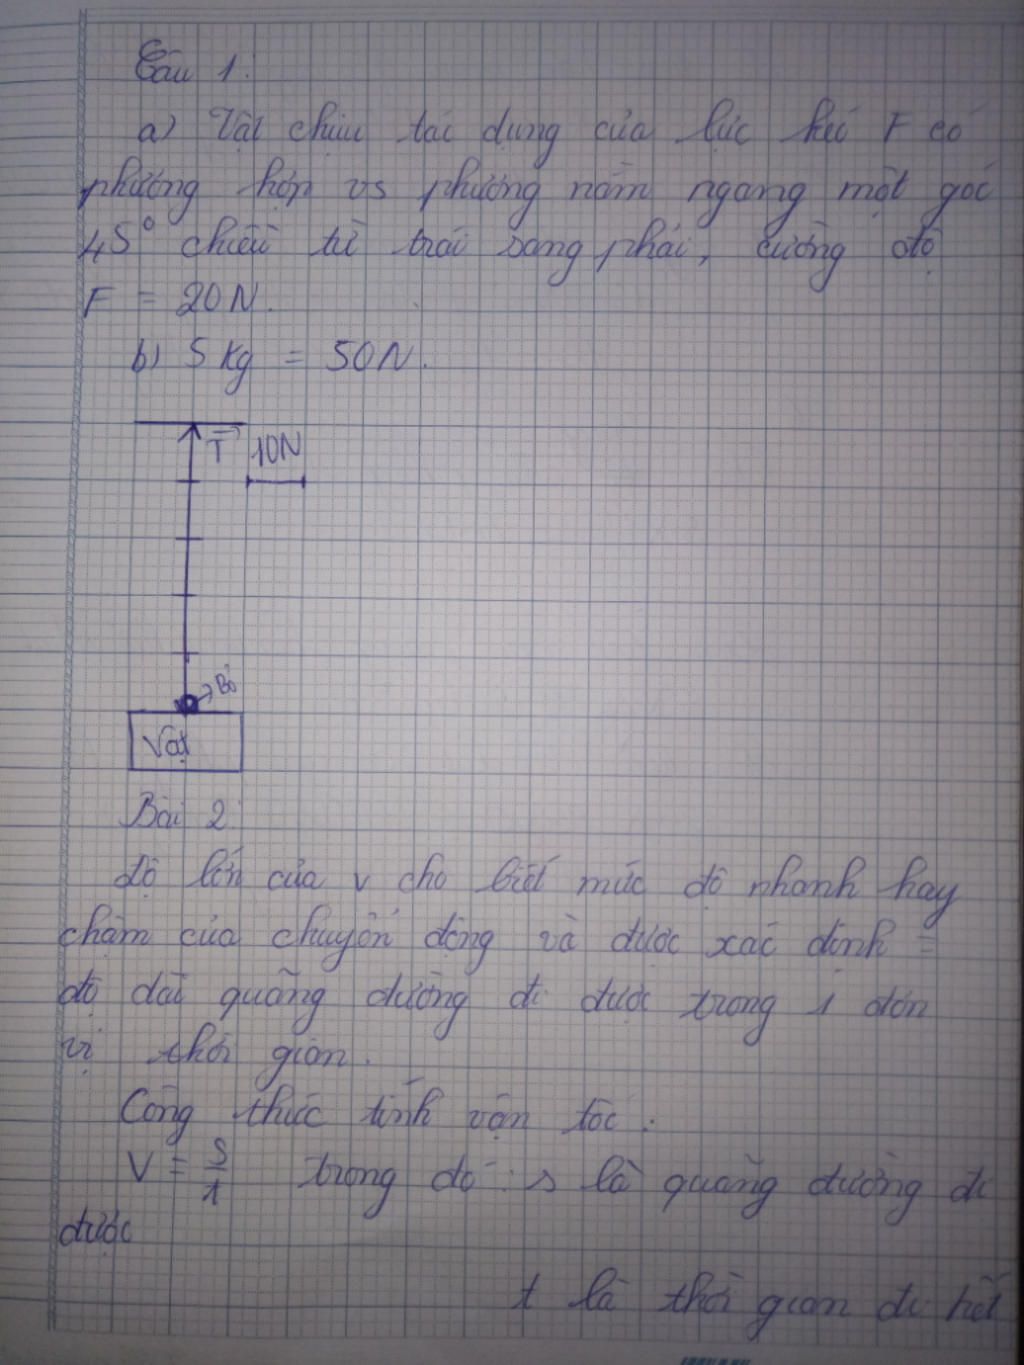 Câu 1:
a) Vật chịu tác dụng của lực kéo F có
phương hợp vs phương nằm ngang một góc
45° chiều từ trái sang phải, cường độ
F = 20N.
b) 5 kg = 50N.
T 10N
Bò
Vật
Bài 2
độ lớn của v cho biết mức độ nhanh hay
chậm của chuyển động và được xác định =
độ dài quãng đường đi được trong 1 đơn
vị thời gian.
Công thức tính vận tốc:
V = s/t trong đó: s là quãng đường đi
được
t là thời gian đi hết